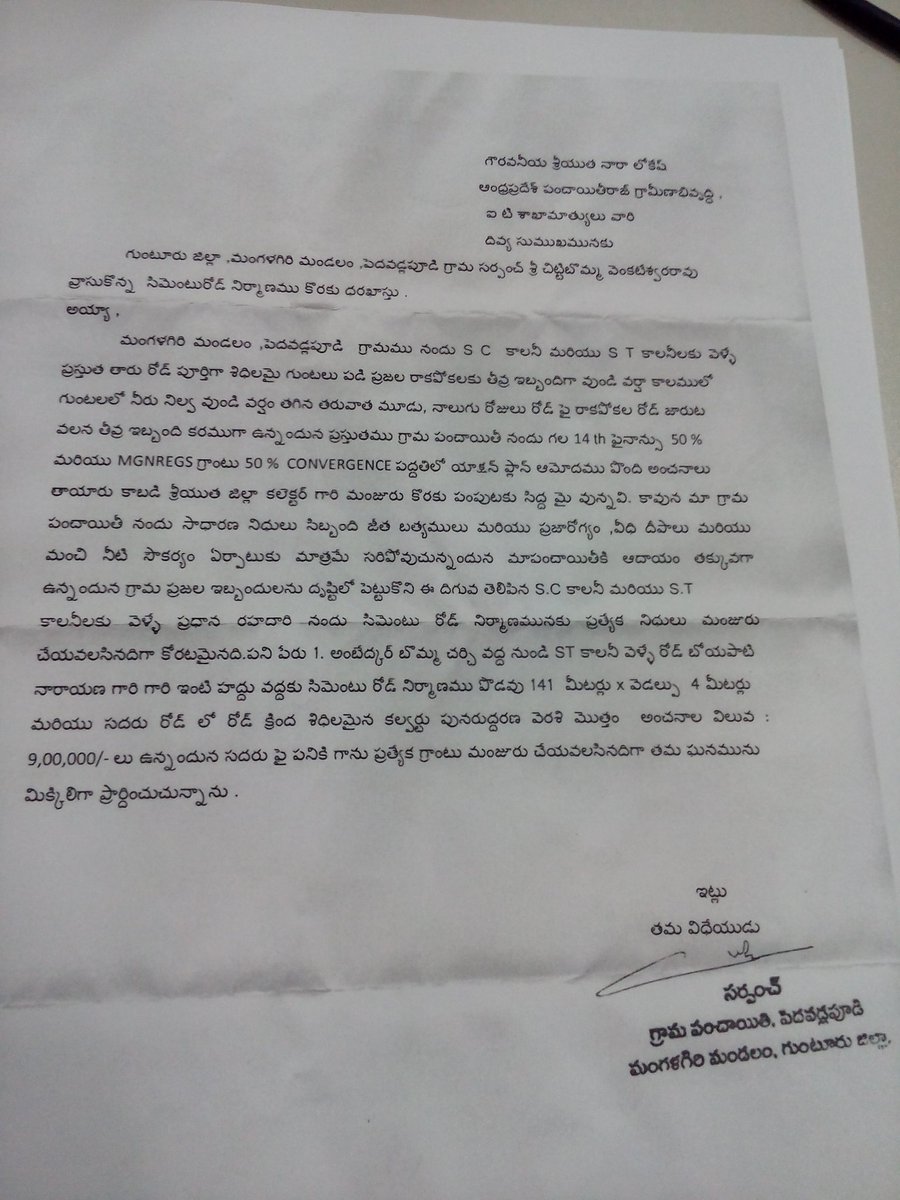 గౌరవనీయ శ్రీయుత నారా లోకేష్
ఆంధ్రప్రదేశ్ పంచాయితీరాజ్ గ్రామీణాభివృద్ధి ,
ఐ టి శాఖామాత్యులు వారి
దివ్య సుముఖమునకు
గుంటూరు జిల్లా ,మంగళగిరి మండలం ,పెదవడ్లపూడి గ్రామ సర్పంచ్ శ్రీ చిట్టిబొమ్మ వెంకటేశ్వరరావు
వ్రాసుకొన్న సిమెంటురోడ్ నిర్మాణము కొరకు దరఖాస్తు .
అయ్యా ,
మంగళగిరి మండలం ,పెదవడ్లపూడి గ్రామము నందు S C కాలనీ మరియు S T కాలనీలకు వెళ్ళే
ప్రస్తుత తారు రోడ్ పూర్తిగా శిధిలమై గుంటలు పడి ప్రజల రాకపోకలకు తీవ్ర ఇబ్బందిగా వుండి వర్షా కాలములో
గుంటలలో నీరు నిల్వ వుండి వర్షం తగిన తరువాత మూడు, నాలుగు రోజులు రోడ్ పై రాకపోకల రోడ్ జారుట
వలన తీవ్ర ఇబ్బంది కరముగా ఉన్నందున ప్రస్తుతము గ్రామ పంచాయితీ నందు గల 14 th ఫైనాన్సు 50 %
మరియు MGNREGS గ్రాంటు 50 % CONVERGENCE పద్దతిలో యాక్షన్ ప్లాన్ ఆమోదము పొంది అంచనాలు
తాయారు కాబడి శ్రీయుత జిల్లా కలెక్టర్ గారి మంజురు కొరకు పంపుటకు సిద్ద మై వున్నవి. కావున మా గ్రామ
పంచాయితీ నందు సాదారణ నిధులు సిబ్బంది జీత బత్యములు మరియు ప్రజారోగ్యం ,వీధి దీపాలు మరియు
మంచి నీటి సౌకర్యం ఏర్పాటుకు మాత్రమే సరిపోవుచున్నందున మాపంచాయితీకి ఆదాయం తక్కువగా
ఉన్నందున గ్రామ ప్రజల ఇబ్బందులను దృష్టిలో పెట్టుకొని ఈ దిగువ తెలిపిన S.C కాలనీ మరియు S.T
కాలనీలకు వెళ్ళే ప్రధాన రహదారి నందు సిమెంటు రోడ్ నిర్మాణమునకు ప్రత్యేక నిధులు మంజురు
చేయవలసినదిగా కోరటమైనది.పని పేరు 1. అంబేద్కర్ బొమ్మ చర్చి వద్ద నుండి ST కాలనీ వెళ్ళే రోడ్ బోయపాటి
నారాయణ గారి గారి ఇంటి హద్దు వద్దకు సిమెంటు రోడ్ నిర్మాణము పొడవు 141 మీటర్లు x వెడల్పు 4 మీటర్లు
మరియు సదరు రోడ్ లో రోడ్ క్రింద శిధిలమైన కల్వర్టు పునరుద్దరణ వెరశి మొత్తం అంచనాల విలువ :
9,00,000/- లు ఉన్నందున సదరు పై పనికి గాను ప్రత్యేక గ్రాంటు మంజురు చేయవలసినదిగా తమ ఘనమును
మిక్కిలిగా ప్రార్దించుచున్నాను .
ఇట్లు
తమ విధేయుడు
సర్పంచ్
గ్రామ పంచాయితి, పెదవడ్లపూడి
మంగళగిరి మండలం, గుంటూరు జిల్లా.